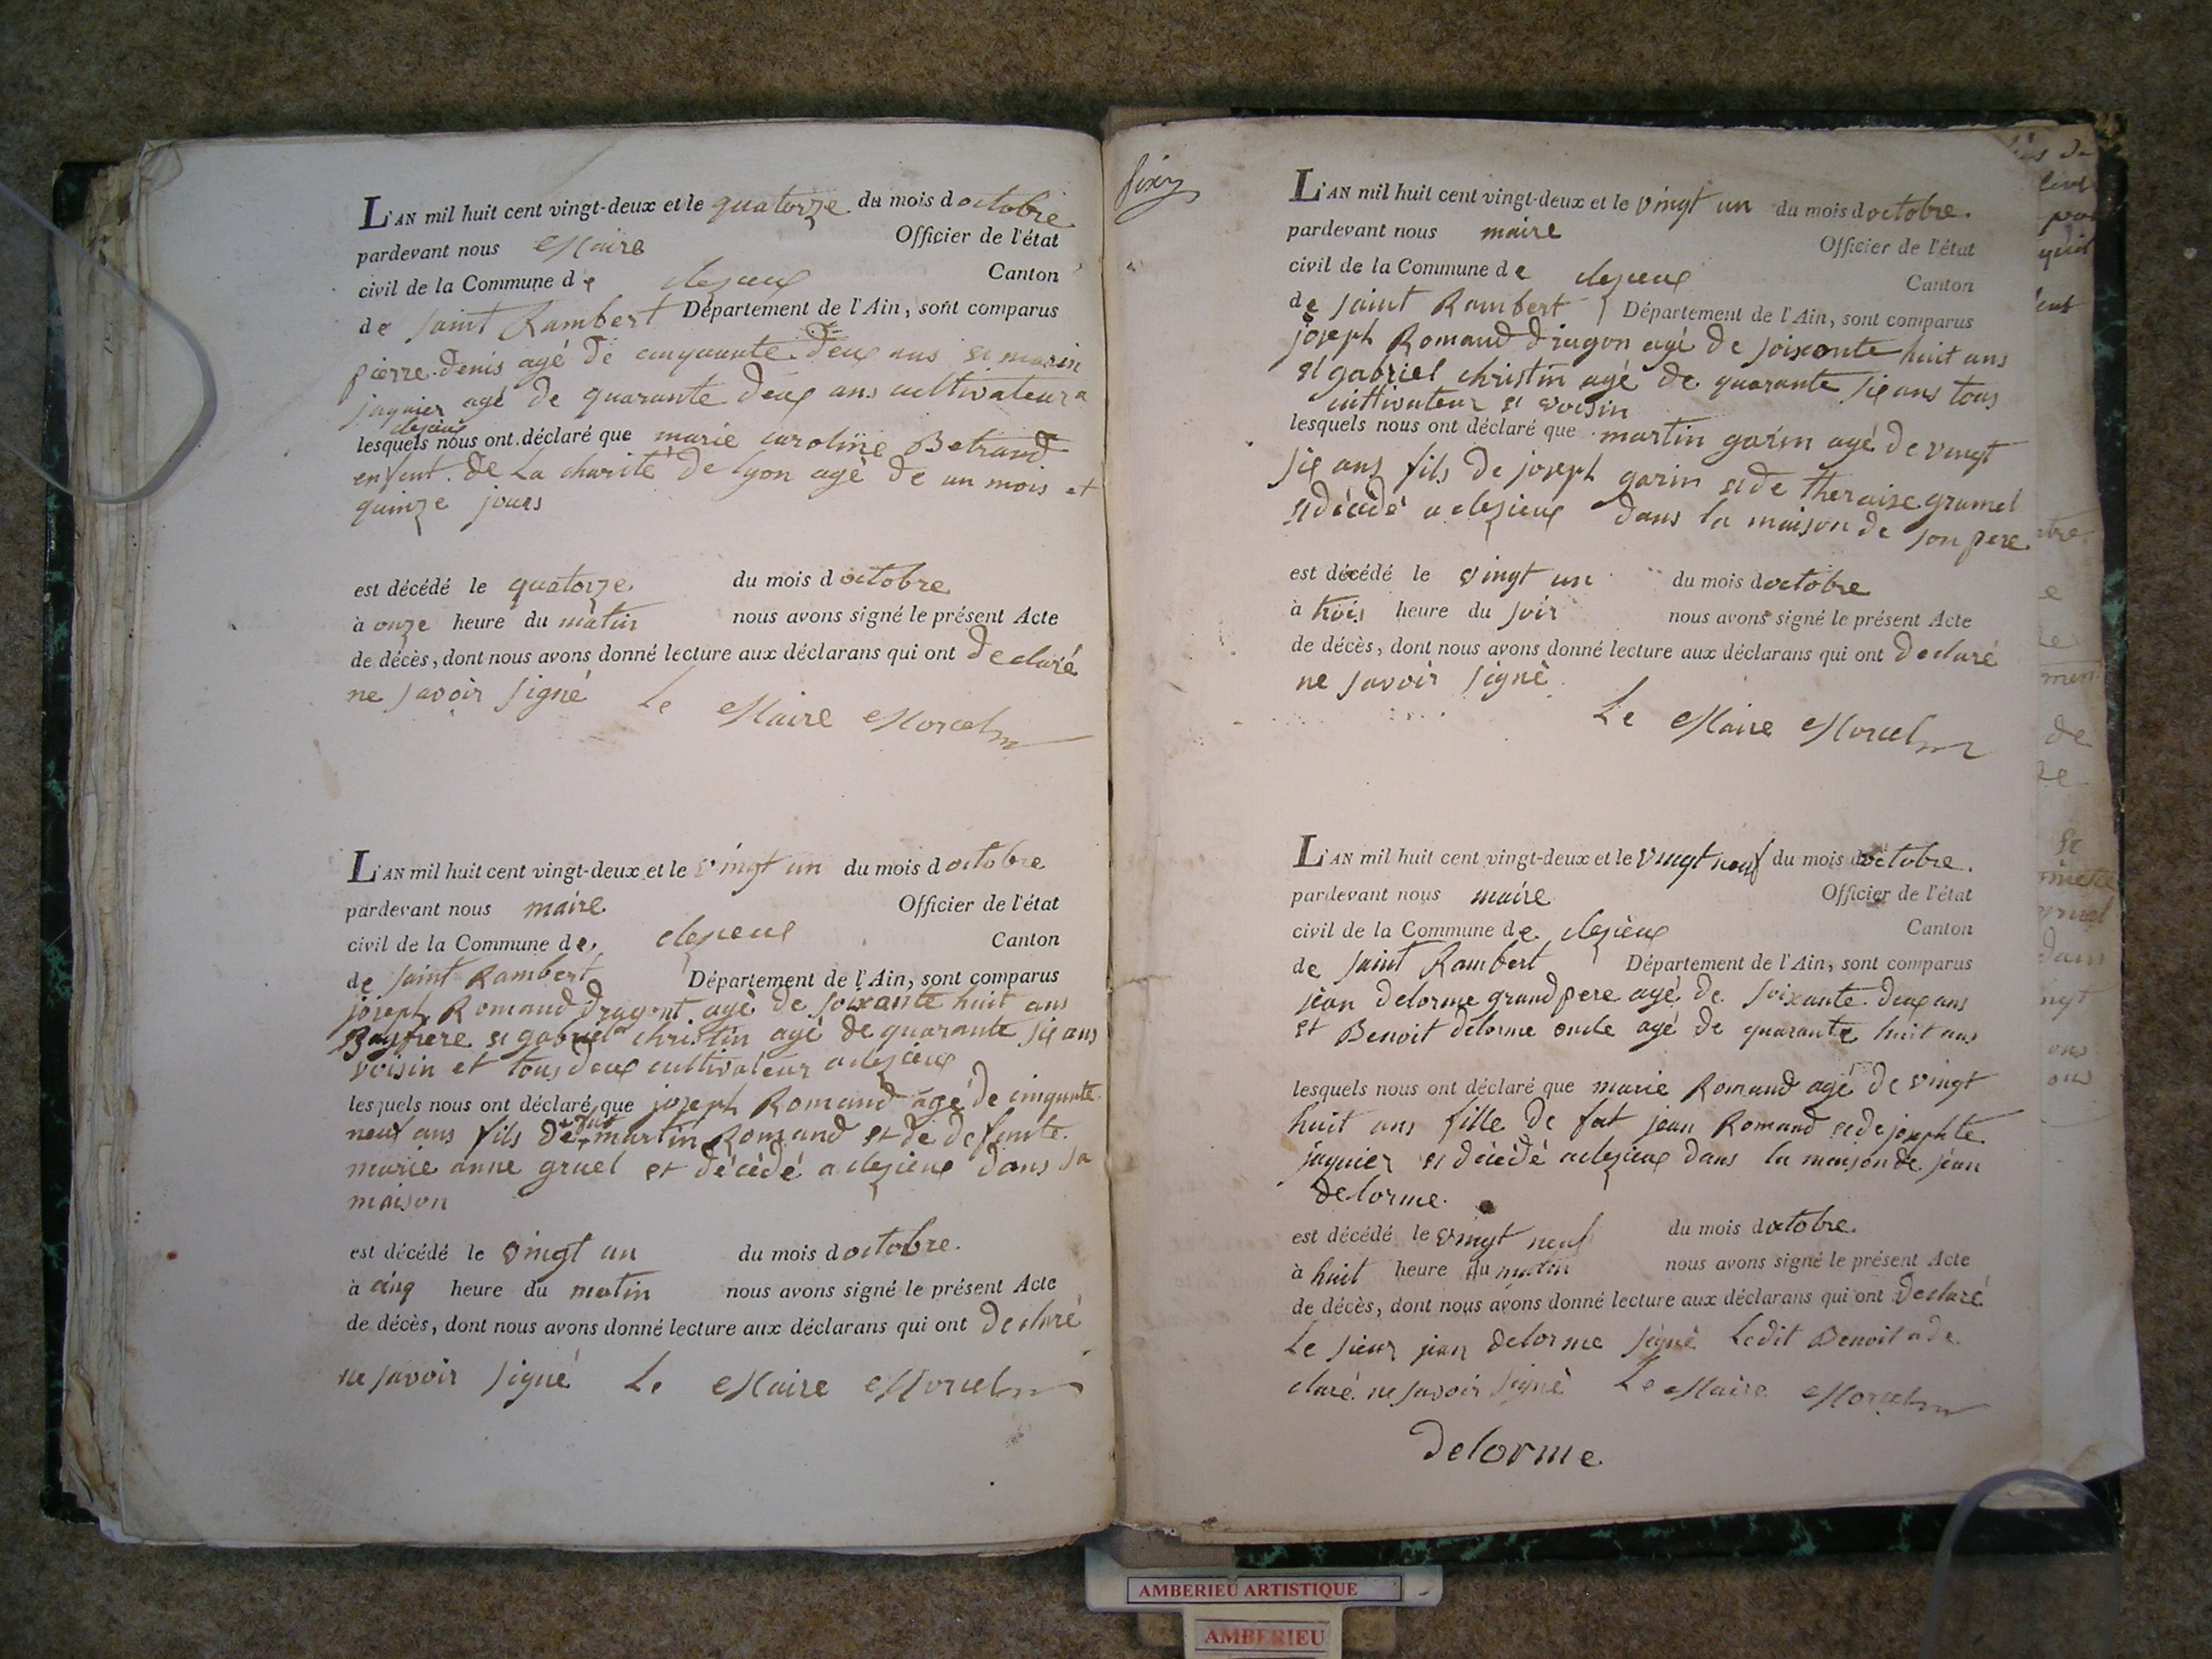 L'AN mil huit cent vingt-deux et le quatorze du mois doctobre
pardevant nous Maire Officier de l'état
civil de la Commune de clezieux Canton
de saint Rambert Département de l'Ain, sont comparus
pierre denis agé de cinquante deux ans et marin
jaquier agé de quarante deux ans cultivateur a
clezieux
lesquels nous ont déclaré que marie caroline Betrand
enfent de La charité de lyon agé de un mois et
quinze jours
est décédé le quatorze du mois doctobre
à onze heure du matin nous avons signé le présent Acte
de décès, dont nous avons donné lecture aux déclarans qui ont declaré
ne savoir signé Le Maire Morcel
L'AN mil huit cent vingt-deux et le vingt un du mois doctobre
pardevant nous maire Officier de l'état
civil de la Commune de clezieux Canton
de saint Rambert Département de l'Ain, sont comparus
joseph Romand dragont agé de soixante huit ans
Baufrere et gabriel christin agé de quarante six ans
voisin et tous deux cultivateur a clezieux
lesquels nous ont déclaré que joseph Romand agé de cinquante
neuf ans fils de feut martin Romand et de defunte
marie anne gruel et décédé a clezieux dans sa
maison
est décédé le vingt un du mois doctobre
à cinq heure du matin nous avons signé le présent Acte
de décès, dont nous avons donné lecture aux déclarans qui ont declaré
ne savoir signé Le Maire Morcel
L'AN mil huit cent vingt-deux et le vingt un du mois doctobre
pardevant nous maire Officier de l'état
civil de la Commune de clezieux Canton
de saint Rambert Département de l'Ain, sont comparus
joseph Romand dragon agé de soixante huit ans
et gabriel christin agé de quarante six ans tous
cultivateur et voisin
lesquels nous ont déclaré que martin garin agé de vingt
six ans fils de joseph garin et de theraise grumel
et décédé a clezieux dans la maison de son pere
est décédé le vingt un du mois doctobre
à trois heure du soir nous avons signé le présent Acte
de décès, dont nous avons donné lecture aux déclarans qui ont declaré
ne savoir signé
Le Maire Morcel
L'AN mil huit cent vingt-deux et le vingt neuf du mois doctobre
pardevant nous maire Officier de l'état
civil de la Commune de clezieux Canton
de saint Rambert Département de l'Ain, sont comparus
jean delorme grand pere agé de soixante deux ans
et Benoit delorme oncle agé de quarante huit ans
lesquels nous ont déclaré que marie Romand agé de vingt
huit ans fille de fut jean Romand et de josephte
jaquier et décédé a clezieux dans la maison de jean
delorme
est décédé le vingt neuf du mois doctobre
à huit heure du matin nous avons signé le présent Acte
de décès, dont nous avons donné lecture aux déclarans qui ont declaré
Le sieur jean delorme signé Ledit Benoit a de
claré ne savoir signé Le Maire Morcel
delorme
AMBERIEU ARTISTIQUE
AMBERIEU